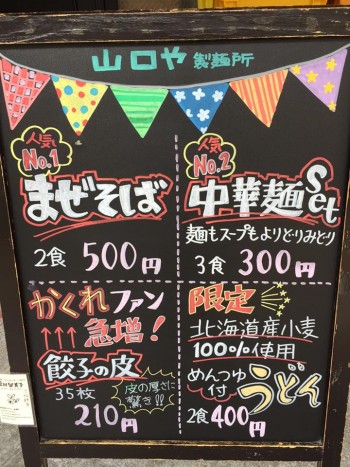 山口や 製麺所
人気
No.1
まぜそば
2食 500円
人気
No.2
中華麺 Set
麺もスープもよりどりみどり
3食 300円
かくれファン
↑↑↑ 急増!
餃子の皮
35枚
皮の厚さに
驚き!!
210円
限定
北海道産小麦
100%使用
めんつゆ
付
うどん
2食 400円